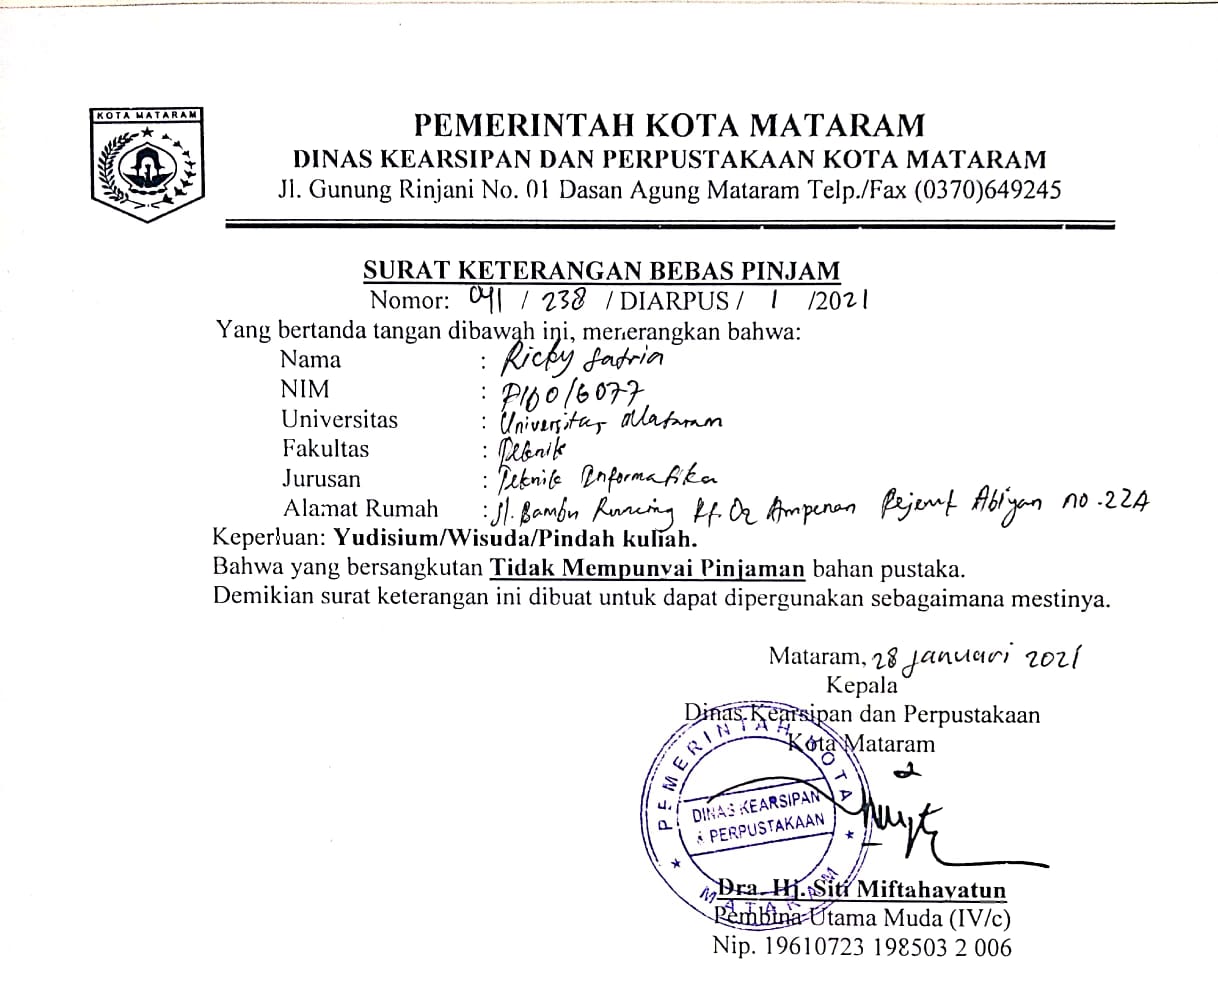 KOTA MATARAM
PEMERINTAH KOTA MATARAM
DINAS KEARSIPAN DAN PERPUSTAKAAN KOTA MATARAM
Jl. Gunung Rinjani No. 01 Dasan Agung Mataram Telp./Fax (0370)649245
SURAT KETERANGAN BEBAS PINJAM
Nomor: 041 / 238 / DIARPUS / 1 /2021
Yang bertanda tangan dibawah ini, menerangkan bahwa:
Nama : Ricky Satria
NIM :
Universitas : Universitas Mataram
Fakultas : Teknik
Jurusan : Teknik Informatika
Alamat Rumah : Jl. Bambu Runcing Rt. 02 Ampenan Pejeruk Abiyan no. 22A
Keperluan: Yudisium/Wisuda/Pindah kuliah.
Bahwa yang bersangkutan Tidak Mempunyai Pinjaman bahan pustaka.
Demikian surat keterangan ini dibuat untuk dapat dipergunakan sebagaimana mestinya.
Mataram, 28 Januari 2021
Kepala
Dinas Kearsipan dan Perpustakaan
Kota Mataram
PEMERINTAH KOTA
DINAS KEARSIPAN
& PERPUSTAKAAN
MATARAM
Dra. Hj. Siti Miftahayatun
Pembina Utama Muda (IV/c)
Nip. 19610723 198503 2 006